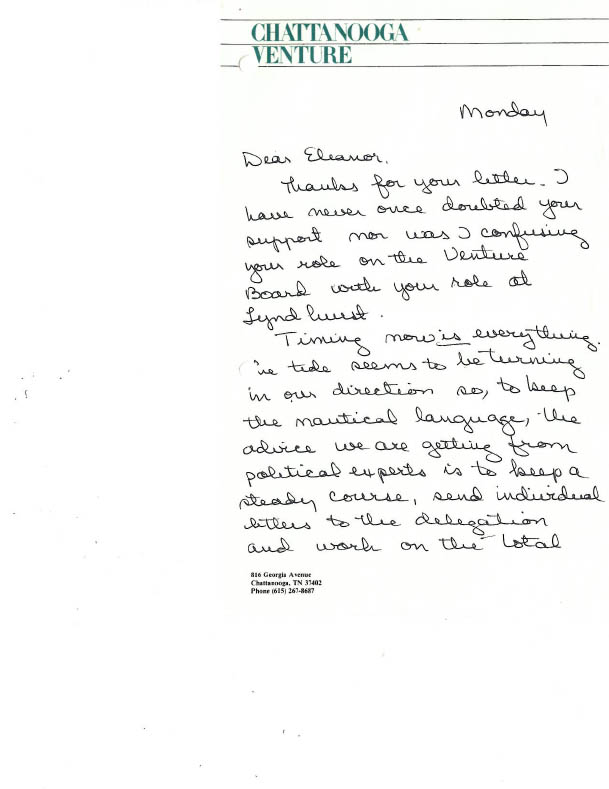 CHATTANOOGA
VENTURE
Monday
Dear Eleanor,
Thanks for your letter. I
have never once doubted your
support nor was I confusing
your role on the Venture
Board with your role at
Lyndhurst.
Timing now is everything.
tide seems to be turning
in our direction so, to keep
the nautical language, the
advice we are getting from
political experts is to keep a
steady course, send individual
letters to the delegation
and work on the total
816 Georgia Avenue
Chattanooga, TN 37402
Phone (615) 267-8687